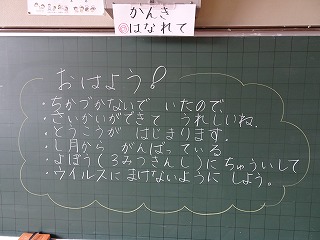 かんき
はなれて
おはよう！
・ちかづかないで いたので
・さいかいができて うれしいね.
・とうこうが はじまります.
・し月から がんばっている
・よぼう(3みつきんし)に ちゅういして
・ウイルスに まけないように しよう。